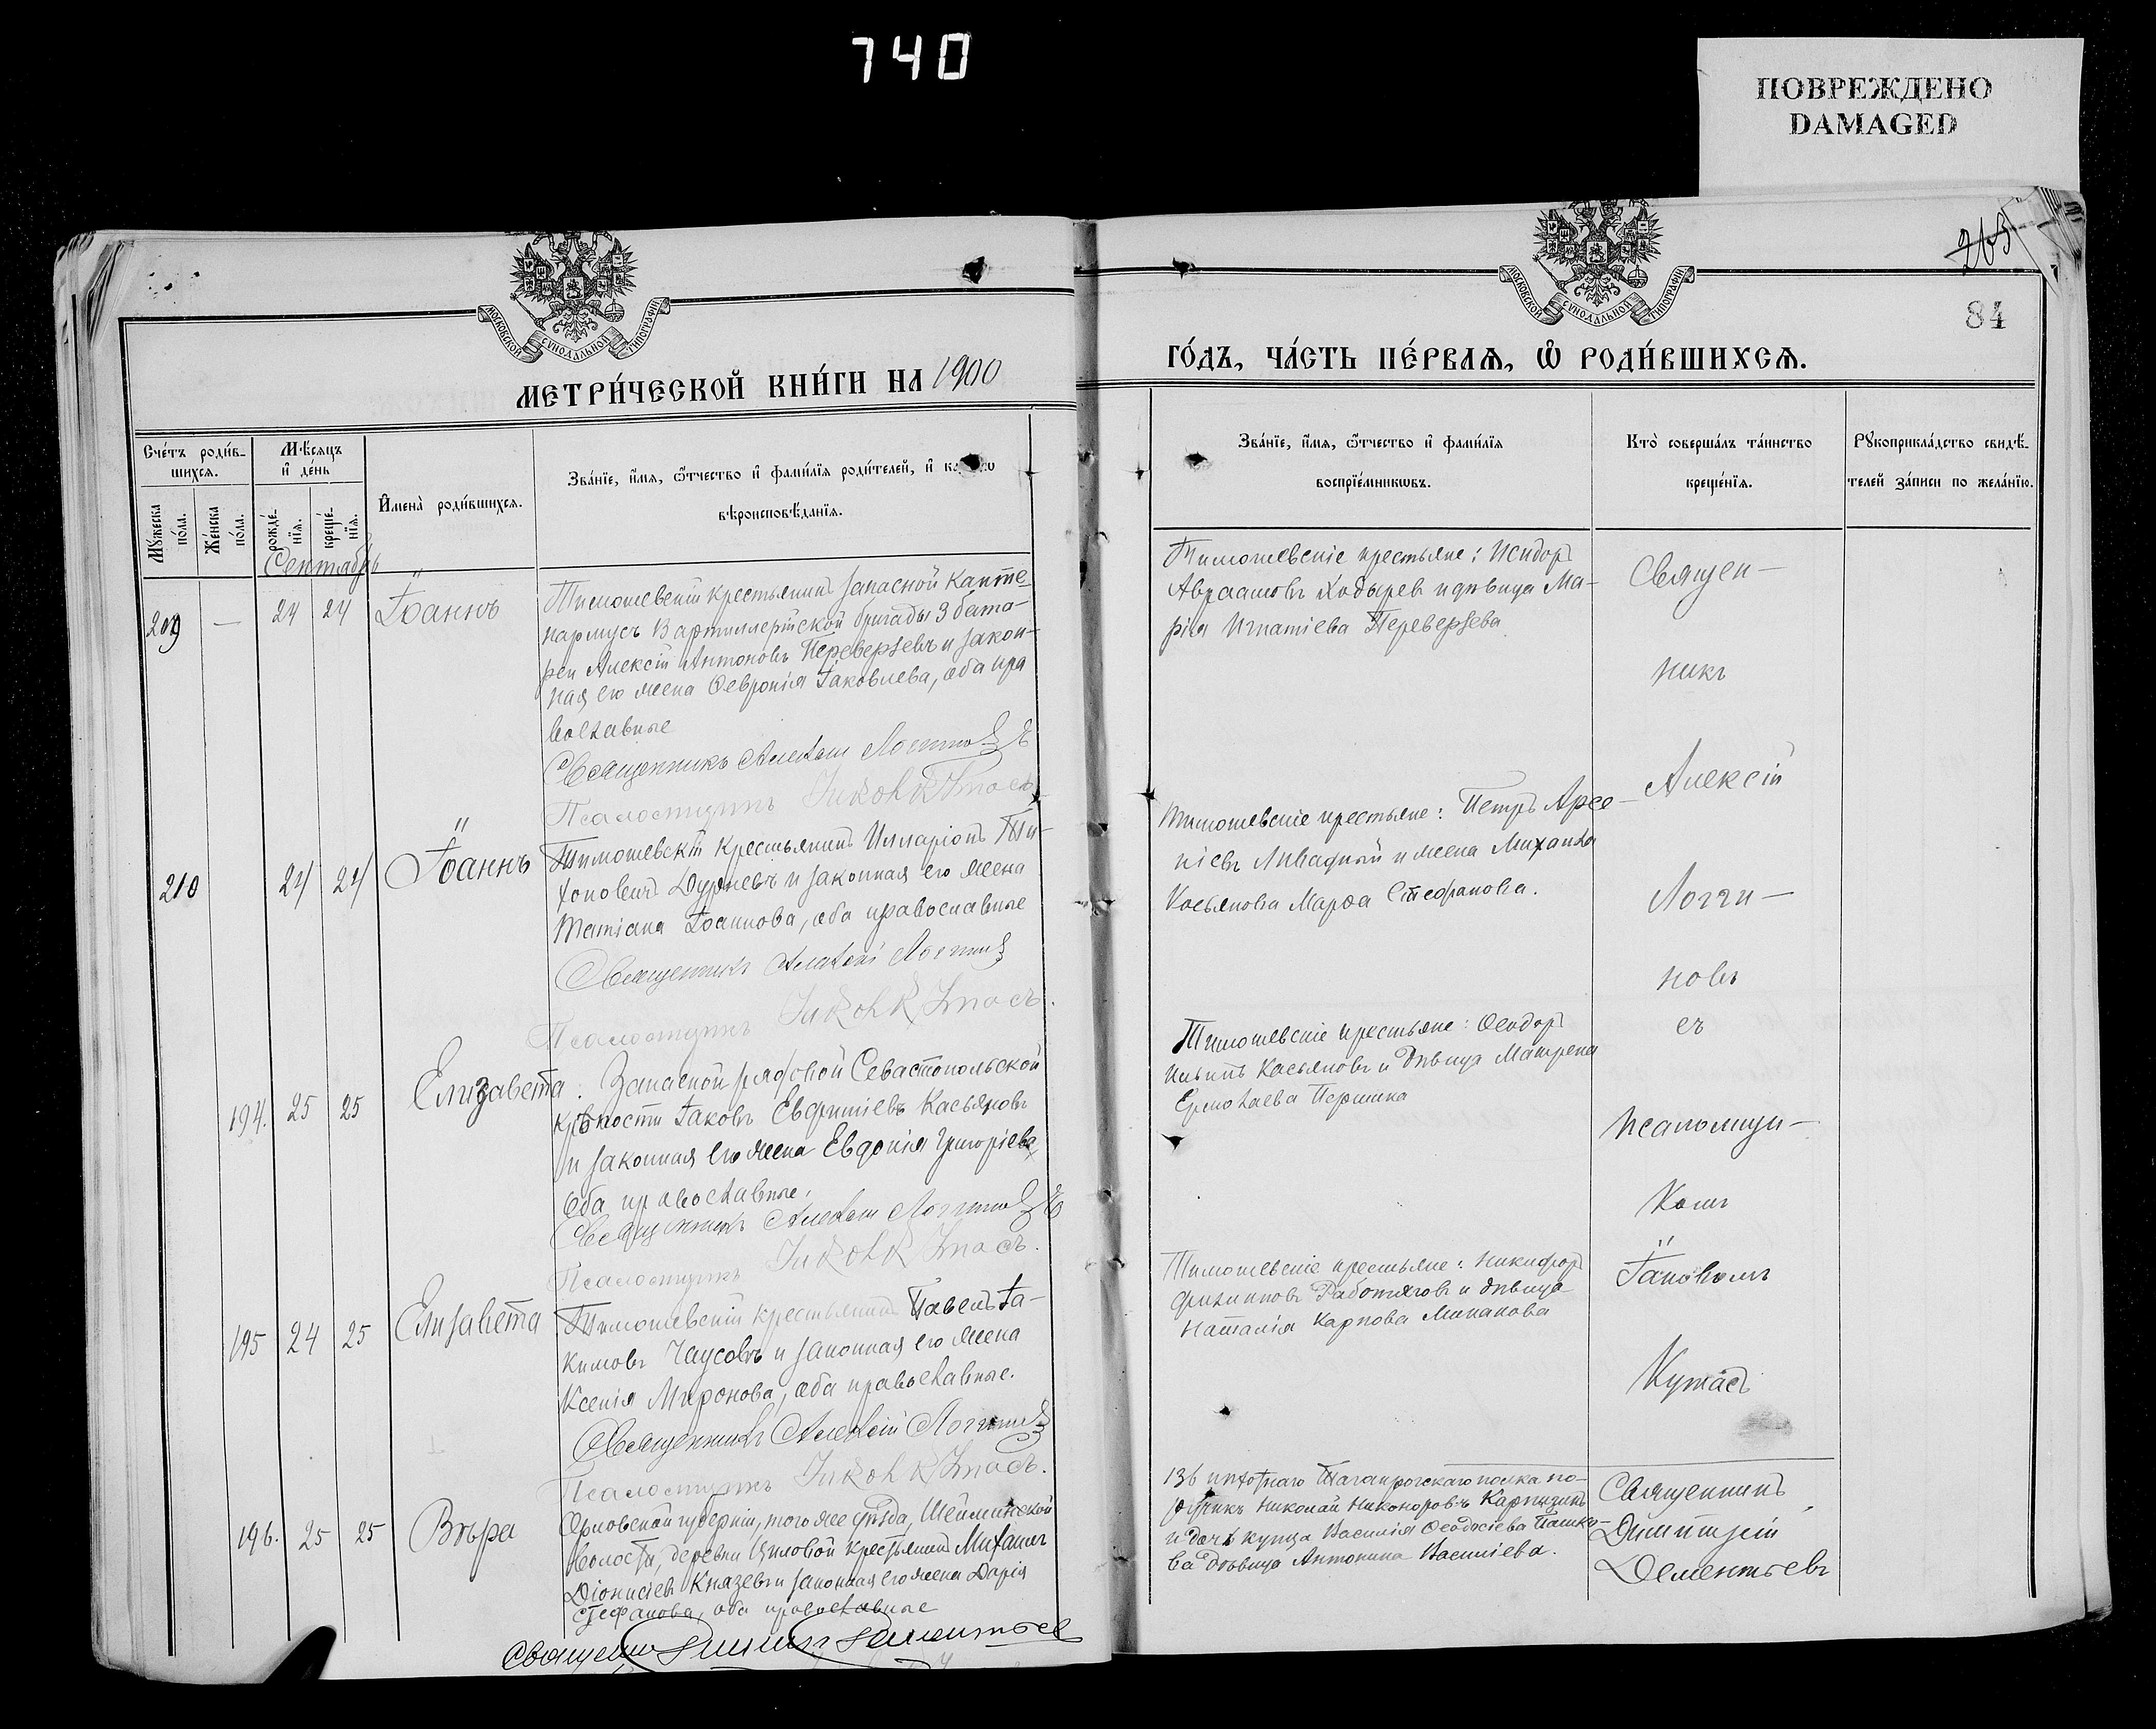 740
ПОВРЕЖДЕНО
DAMAGED
263
84
МОСКОВСКОЙ СѴНОДАЛЬНОЙ ТИПОГРАФІИ
МОСКОВСКОЙ СѴНОДАЛЬНОЙ ТИПОГРАФІИ
МЕТРИ́ЧЕСКОЙ КНИ́ГИ НА 1900
ГО́ДЪ, ЧА́СТЬ ПЕ́РВАѦ, Ѡ҆ РОДИ́ВШИХСѦ.
Сче́тъ роди́в-
шихсѧ.
Мѣ́сѧцъ
и҆ де́нь
Мꙋ́жеска по́ла.
Же́нска по́ла.
рожде́-
нїѧ.
креще́-
нїѧ.
И҆мена̀ роди́вшихсѧ.
Зва́нїе, и҆́мѧ, ѻ҆́тчество и҆ фами́лїѧ роди́телей, и҆
вѣроисповѣ́данїѧ.
Зва́нїе, и҆́мѧ, ѻ҆́тчество и҆ фами́лїѧ
воспрїе́мникѡвъ.
Кто̀ соверша́лъ та́инство
креще́нїѧ.
Рꙋкоприкла́дство свидѣ́-
телей за́писи по жела́нїю.
Сентябрь
209 — 24 24 Іоаннъ
Тимошевскій крестьянинъ запасной канте-
нармусъ В артиллерійской бригады 3 бата-
реи Алексій Антоновъ Переверзевъ и закон-
ная его жена Ѳевронія Іаковлева, оба пра
вославные
Священникъ Алексій Логгиновъ
Псаломщикъ Іаковъ Кутасъ
Тимошевскіе крестьяне: Исидоръ
Авраамовъ Ходырев и дѣвица Ма-
рія Игнатіева Переверзева
210 24 24 Іоаннъ
Тимошевскій крестьянинъ Илларіонъ Ти-
хоновичъ Дурневъ и законная его жена
Татіана Іоаннова, оба православные
Священникъ Алексій Логгинов
Псаломщикъ Іаковъ Кутасъ.
Тимошевскіе крестьяне: Петръ Арсе-
ніевъ Ливадный и жена Михаила
Касьянова Марѳа Стефанова.
194. 25 25 Елизавета
Запасной рядовой Севастопольской
крѣпости Іаковъ Евфиміевъ Касьяновъ
и законная его жена Евдокія Григоріева
оба православные.
Священникъ Алексій Логгинов
Псаломщикъ Іаковъ Кутасъ.
Тимошевскіе крестьяне: Ѳеодоръ
Ильинъ Касьяновъ и дѣвица Матрена
Ермолаева Першина
195 24 25 Елизавета
Тимошевскій крестьянинъ Павелъ Іа-
кимовъ Чаусовъ и законная его жена
Ксенія Миронова, оба православные.
Священникъ Алексій Логгинов
Псаломщикъ Іаковъ Кутасъ.
Тимошевскіе крестьяне: Никифоръ
Филипповъ Работяговъ и дѣвица
Наталія Карпова Минакова
196. 25 25 Вѣра
Орловской губерніи, того же уѣзда,
волости, деревни крестьянинъ Михаилъ
Діонисіев Князевъ и законная его жена Дарія
Стефанова, оба православные
Священникъ Димитрій Дементьев
136 пѣхотнаго Таганрогскаго полка по-
ручикъ Николай Никоноровъ
и дочь купца Василія Ѳеодосіева Пашко-
ва дѣвица Антонина Василіева.
Священ-
никъ
Алексій
Логги-
новъ
съ
псаломщи-
комъ
Іаковомъ
Кутасъ
Священникъ
Димитрій
Дементьевъ